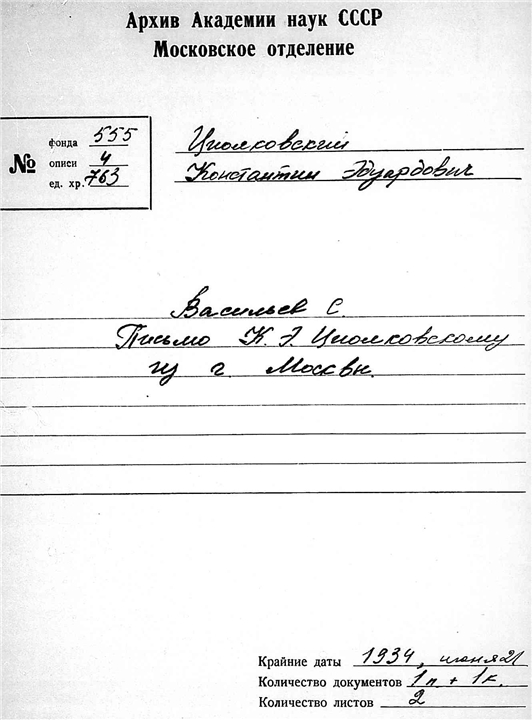 Архив Академии наук СССР
Московское отделение
№
фонда 555
описи 4
ед. хр. 763
Циолковский
Константин Эдуардович
Васильев С.
Письмо К. Э Циолковскому
из г. Москвы.
Крайние даты 1934, июня 21
Количество документов 1п. + 1к.
Количество листов 2